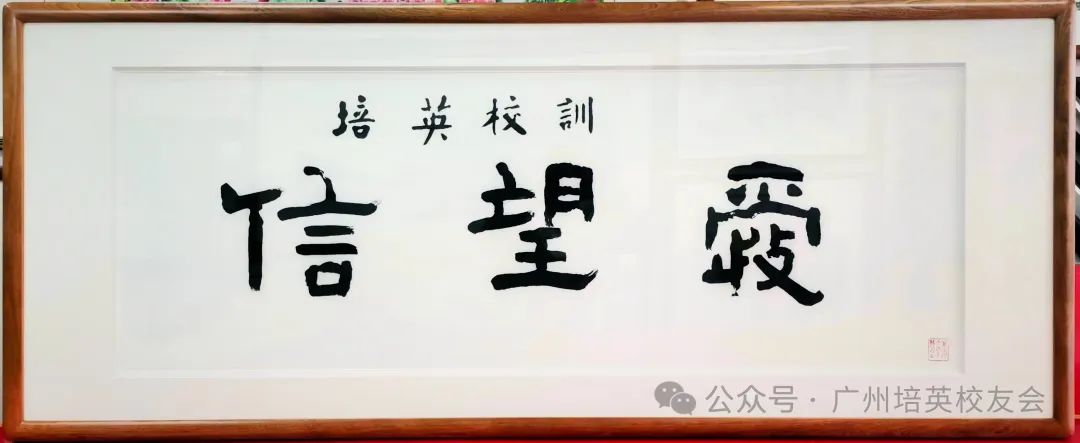 培英校訓
信望愛
公众号·广州培英校友会